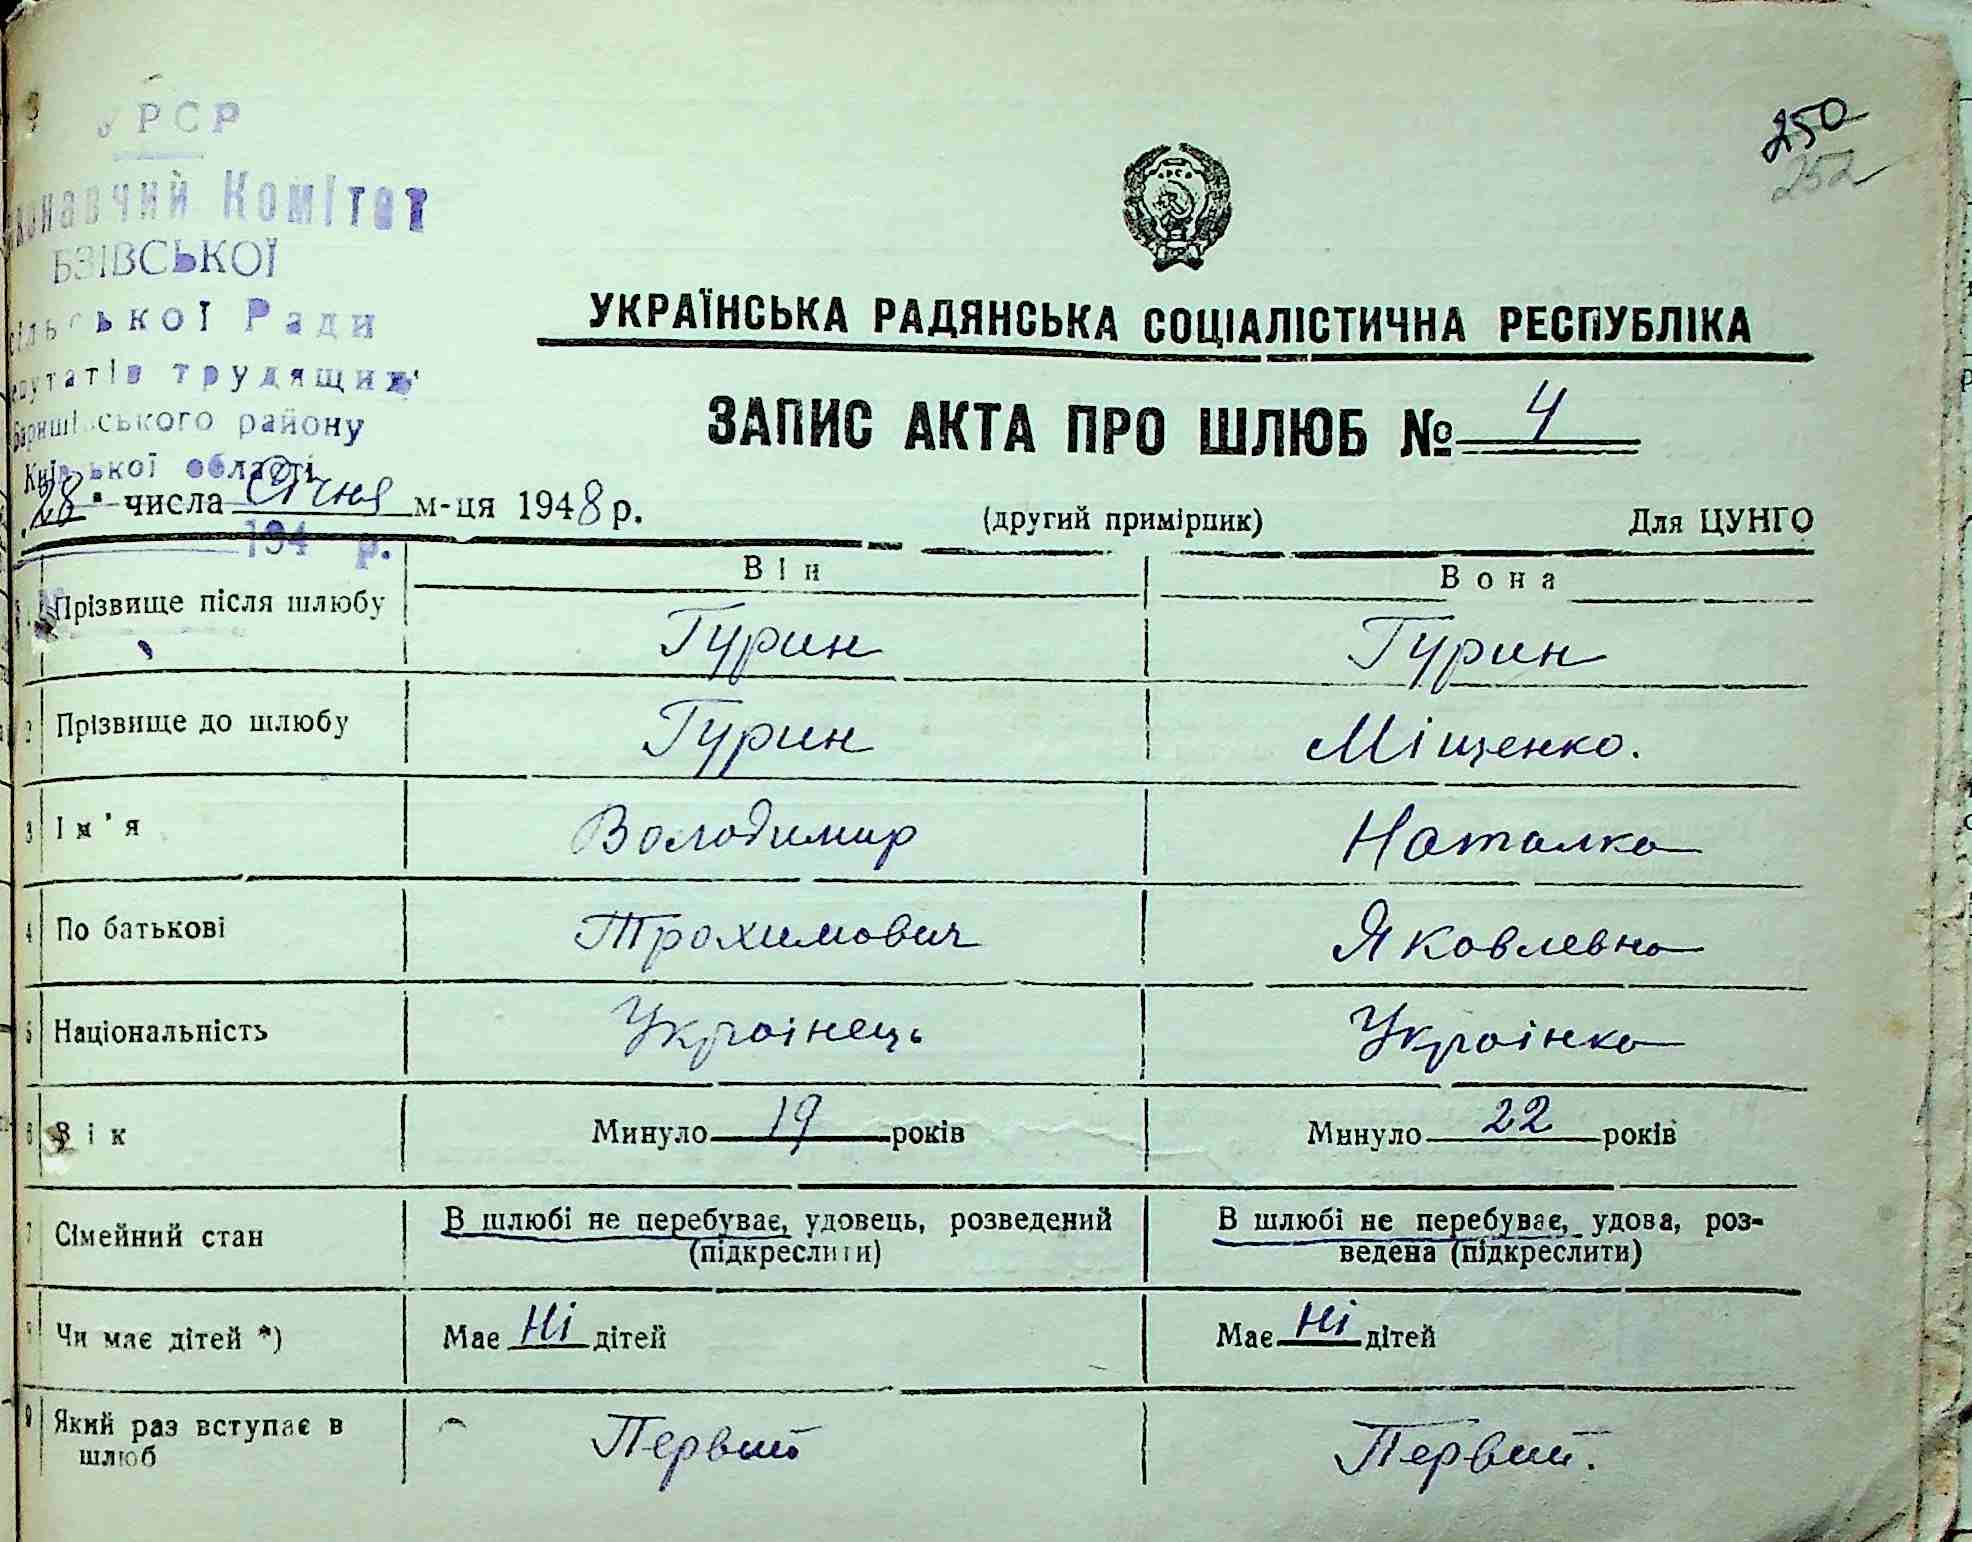 УРСР
Виконавчий Комітет
БЗІВСЬКОЇ
сільської Ради
депутатів трудящих
Баришівського району
Київської області
194 р.
250
252
УКРАЇНСЬКА РАДЯНСЬКА СОЦІАЛІСТИЧНА РЕСПУБЛІКА
ЗАПИС АКТА ПРО ШЛЮБ № 4
"28" числа Січня м-ця 1948 р. (другий примірник) Для ЦУНГО
Він Вона
1 Прізвище після шлюбу Гурин Гурин
2 Прізвище до шлюбу Гурин Міщенко.
3 Ім'я Володимир Наталка
4 По батькові Трохимович Яковлевна
5 Національність Украінець Украінка
6 Вік Минуло 19 років Минуло 22 років
7 Сімейний стан В шлюбі не перебуває, удовець, розведений В шлюбі не перебуває, удова, роз-
(підкреслити) ведена (підкреслити)
Чи має дітей *) Має Ні дітей Має Ні дітей
9 Який раз вступає в Первий Первий.
шлюб